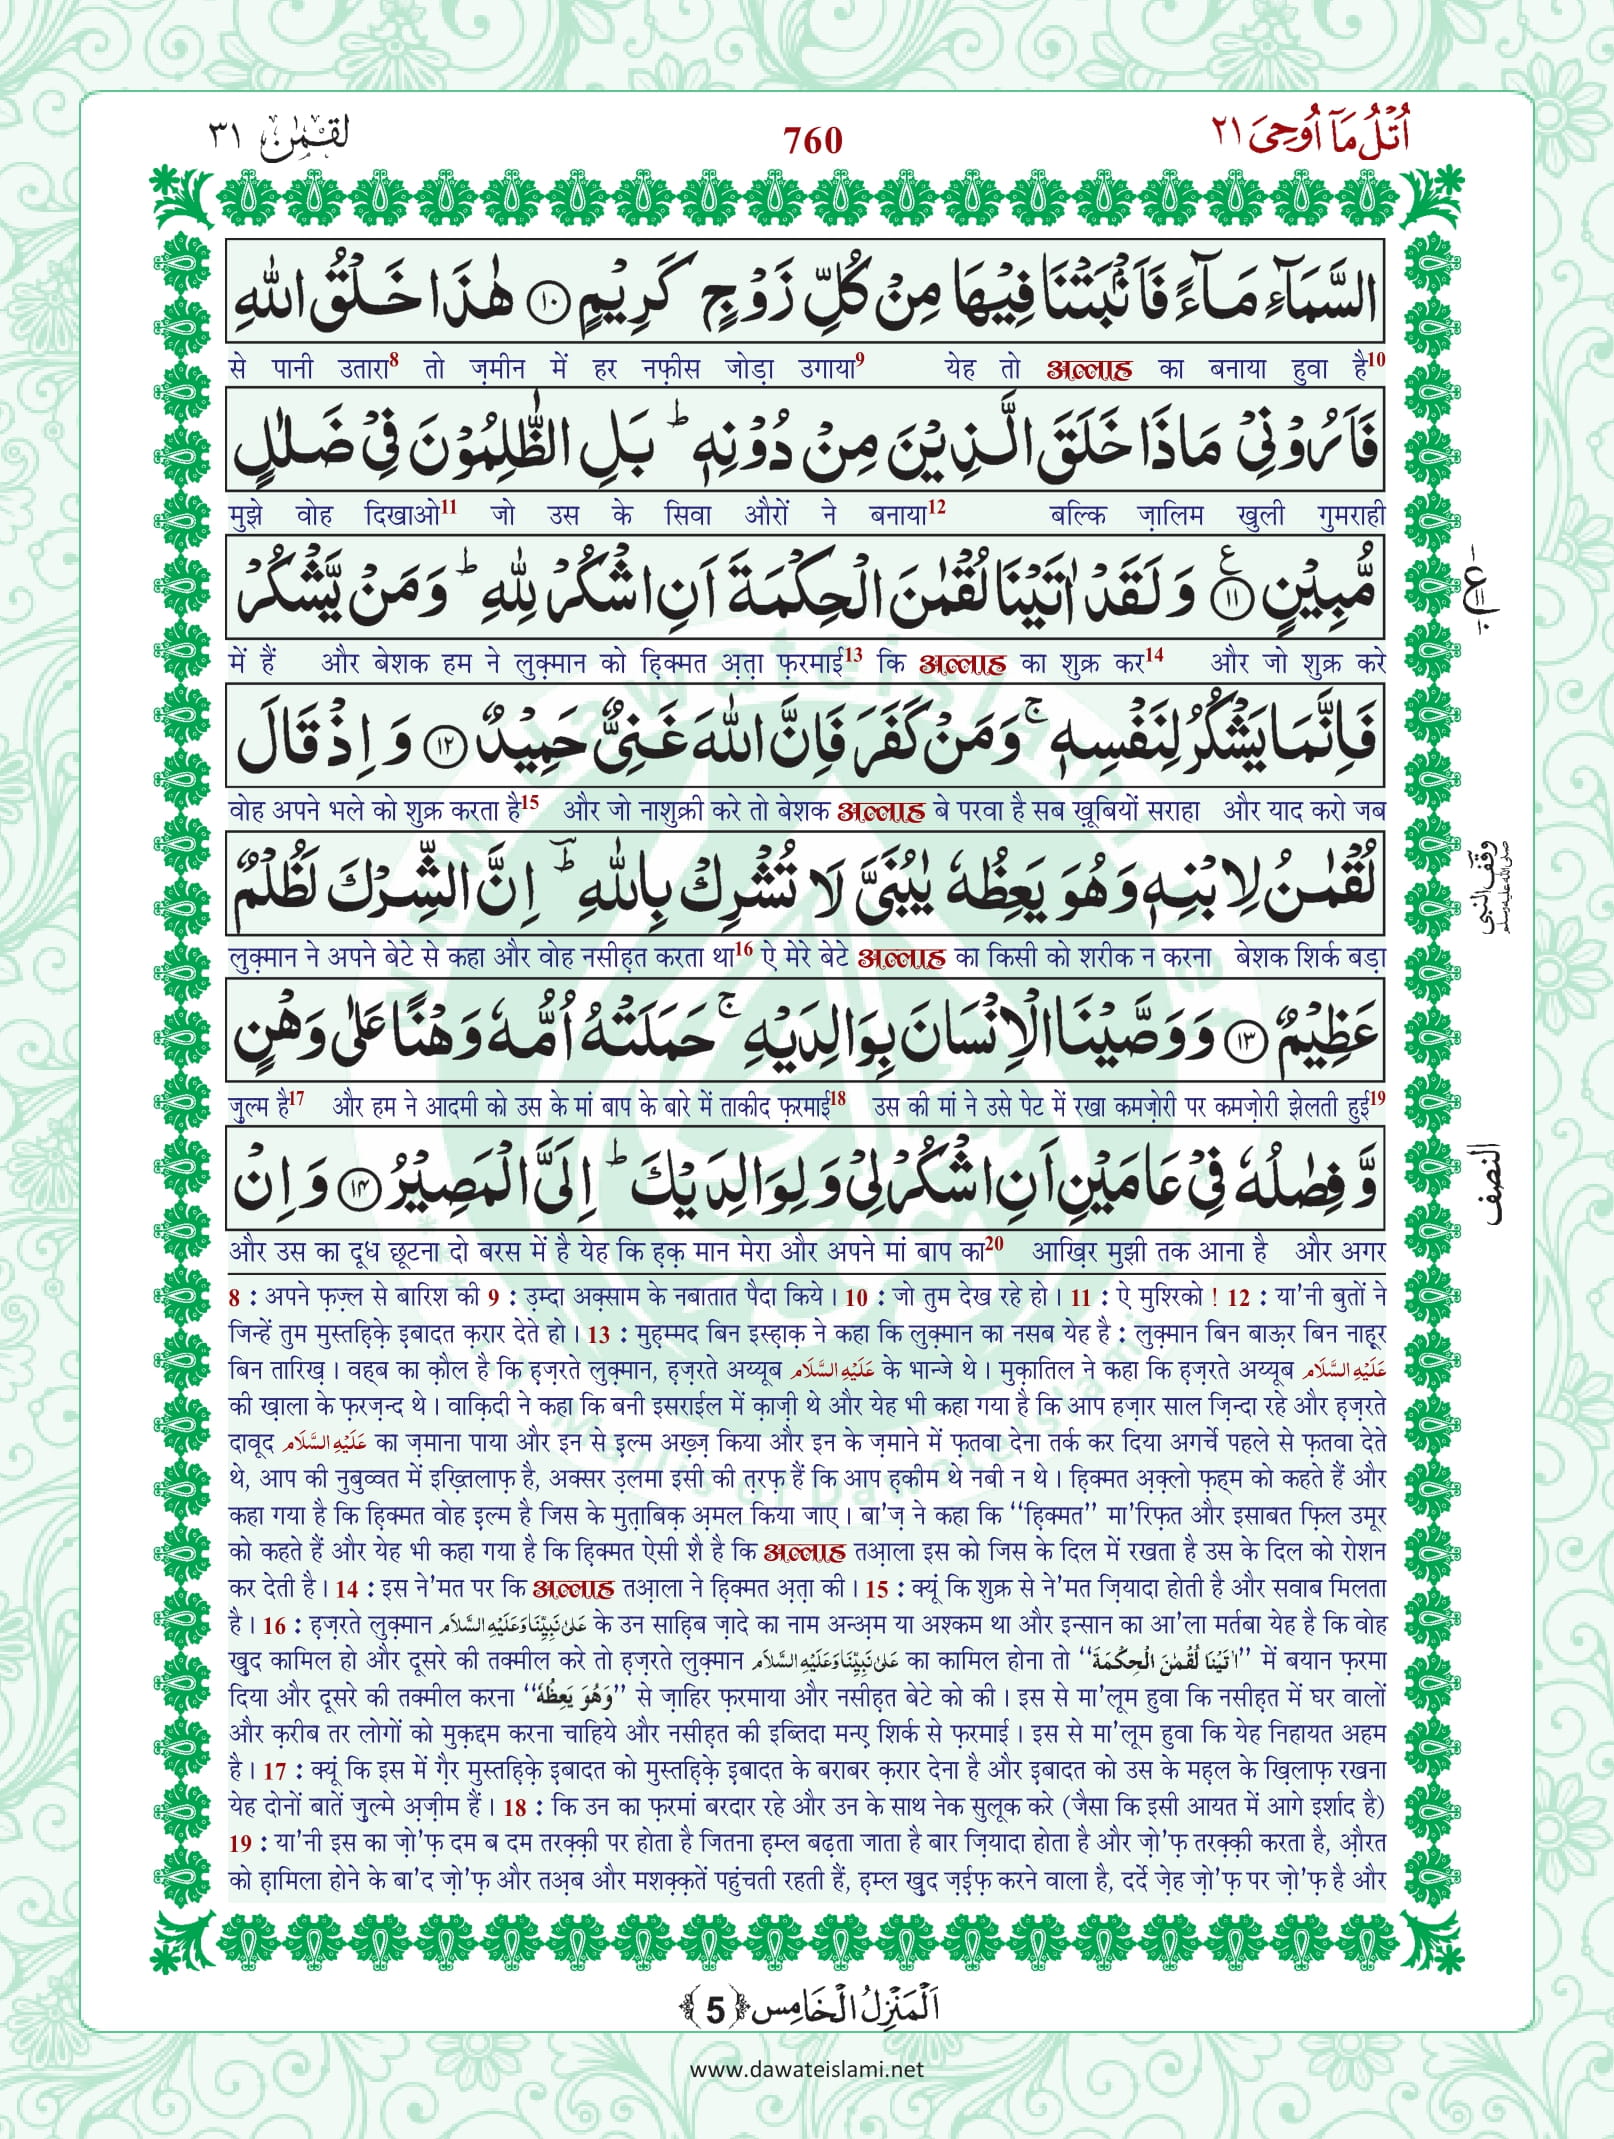 اُتْلُ مَآ اُوْحِیَ ٢١
760
لقمٰن ٣١
السَّمَآءِ مَآءً فَاَنْۢبَتْنَا فِیْهَا مِنْ كُلِّ زَوْجٍ كَرِیْمٍ ﴿۱۰﴾ هٰذَا خَلْقُ اللّٰهِ
से पानी उतारा8 तो ज़मीन में हर नफ़ीस जोड़ा उगाया9 येह तो अल्लाह का बनाया हुवा है10
فَاَرُوْنِیْ مَاذَا خَلَقَ الَّذِیْنَ مِنْ دُوْنِهٖ ؕ بَلِ الظّٰلِمُوْنَ فِیْ ضَلٰلٍ
मुझे वोह दिखाओ11 जो उस के सिवा औरों ने बनाया12 बल्कि ज़ालिम खुली गुमराही
مُّبِیْنٍ ﴿۱۱﴾ ع وَ لَقَدْ اٰتَیْنَا لُقْمٰنَ الْحِكْمَةَ اَنِ اشْكُرْ لِلّٰهِ ؕ وَ مَنْ یَّشْكُرْ
में हैं और बेशक हम ने लुक़्मान को ह़िक्मत अ़त़ा फ़रमाई13 कि अल्लाह का शुक्र कर14 और जो शुक्र करे
فَاِنَّمَا یَشْكُرُ لِنَفْسِهٖ ۚ وَ مَنْ كَفَرَ فَاِنَّ اللّٰهَ غَنِیٌّ حَمِیْدٌ ﴿۱۲﴾ وَ اِذْ قَالَ
वोह अपने भले को शुक्र करता है15 और जो नाशुक्री करे तो बेशक अल्लाह बे परवा है सब ख़ूबियों सराहा और याद करो जब
لُقْمٰنُ لِابْنِهٖ وَ هُوَ یَعِظُهٗ یٰبُنَیَّ لَا تُشْرِكْ بِاللّٰهِ ؕ اِنَّ الشِّرْكَ لَظُلْمٌ
लुक़्मान ने अपने बेटे से कहा और वोह नसीह़त करता था16 ऐ मेरे बेटे अल्लाह का किसी को शरीक न करना बेशक शिर्क बड़ा
وقف النبی صلی الله علیه وسلم
عَظِیْمٌ ﴿۱۳﴾ وَ وَصَّیْنَا الْاِنْسَانَ بِوَالِدَیْهِ ۚ حَمَلَتْهُ اُمُّهٗ وَهْنًا عَلٰى وَهْنٍ
ज़ुल्म है17 और हम ने आदमी को उस के मां बाप के बारे में ताकीद फ़रमाई18 उस की मां ने उसे पेट में रखा कमज़ोरी पर कमज़ोरी झेलती हुई19
وَّ فِصٰلُهٗ فِیْ عَامَیْنِ اَنِ اشْكُرْ لِیْ وَ لِوَالِدَیْكَ ؕ اِلَیَّ الْمَصِیْرُ ﴿۱۴﴾ وَ اِنْ
النصف
और उस का दूध छूटना दो बरस में है येह कि ह़क़ मान मेरा और अपने मां बाप का20 आख़िर मुझी तक आना है और अगर
8 : अपने फ़ज़्ल से बारिश की 9 : उ़म्दा अक़्साम के नबातात पैदा किये । 10 : जो तुम देख रहे हो । 11 : ऐ मुश्रिको ! 12 : या'नी बुतों ने
जिन्हें तुम मुस्तह़िक़े इबादत क़रार देते हो । 13 : मुह़म्मद बिन इस्ह़ाक़ ने कहा कि लुक़्मान का नसब येह है : लुक़्मान बिन बाऊ़र बिन नाहूर
बिन तारिख़ । वह्ब का क़ौल है कि ह़ज़रते लुक़्मान, ह़ज़रते अय्यूब عَلَیْهِ السَّلَام के भान्जे थे । मुक़ातिल ने कहा कि ह़ज़रते अय्यूब عَلَیْهِ السَّلَام
की ख़ाला के फ़रज़न्द थे । वाक़िदी ने कहा कि बनी इसराईल में क़ाज़ी थे और येह भी कहा गया है कि आप हज़ार साल ज़िन्दा रहे और ह़ज़रते
दावूद عَلَیْهِ السَّلَام का ज़माना पाया और इन से इल्म अख़्ज़ किया और इन के ज़माने में फ़तवा देना तर्क कर दिया अगर्चे पहले से फ़तवा देते
थे, आप की नुबुव्वत में इख़्तिलाफ़ है, अक्सर उ़लमा इसी की त़रफ़ हैं कि आप ह़कीम थे नबी न थे । ह़िक्मत अ़क़्लो फ़ह्म को कहते हैं और
कहा गया है कि ह़िक्मत वोह इल्म है जिस के मुत़ाबिक़ अ़मल किया जाए । बा'ज़ ने कहा कि ‘‘ह़िक्मत’’ मा'रिफ़त और इसाबत फ़िल उमूर
को कहते हैं और येह भी कहा गया है कि ह़िक्मत ऐसी शै है कि अल्लाह तआ़ला इस को जिस के दिल में रखता है उस के दिल को रोशन
कर देती है । 14 : इस ने'मत पर कि अल्लाह तआ़ला ने ह़िक्मत अ़त़ा की । 15 : क्यूं कि शुक्र से ने'मत ज़ियादा होती है और सवाब मिलता
है । 16 : ह़ज़रते लुक़्मान عَلٰی نَبِیِّنَا وَعَلَیْهِ السَّلَام के उन साहिब ज़ादे का नाम अन्अ़म या अश्कम था और इन्सान का आ'ला मर्तबा येह है कि वोह
ख़ुद कामिल हो और दूसरे की तक्मील करे तो ह़ज़रते लुक़्मान عَلٰی نَبِیِّنَا وَعَلَیْهِ السَّلَام का कामिल होना तो ‘‘اٰتَیْنَا لُقْمٰنَ الْحِكْمَةَ’’ में बयान फ़रमा
दिया और दूसरे की तक्मील करना ‘‘وَهُوَ یَعِظُهٗ’’ से ज़ाहिर फ़रमाया और नसीह़त बेटे को की । इस से मा'लूम हुवा कि नसीह़त में घर वालों
और क़रीब तर लोगों को मुक़द्दम करना चाहिये और नसीह़त की इब्तिदा मन्ए़ शिर्क से फ़रमाई । इस से मा'लूम हुवा कि येह निहायत अहम
है । 17 : क्यूं कि इस में ग़ैर मुस्तह़िक़े इबादत को मुस्तह़िक़े इबादत के बराबर क़रार देना है और इबादत को उस के मह़ल के ख़िलाफ़ रखना
येह दोनों बातें ज़ुल्मे अ़ज़ीम हैं । 18 : कि उन का फ़रमां बरदार रहे और उन के साथ नेक सुलूक करे (जैसा कि इसी आयत में आगे इर्शाद है)
19 : या'नी इस का ज़ो'फ़ दम ब दम तरक़्क़ी पर होता है जितना ह़म्ल बढ़ता जाता है बार ज़ियादा होता है और ज़ो'फ़ तरक़्क़ी करता है, औ़रत
को ह़ामिला होने के बा'द ज़ो'फ़ और तअ़ब और मशक़्क़तें पहुंचती रहती हैं, ह़म्ल ख़ुद ज़ई़फ़ करने वाला है, दर्दे ज़ेह ज़ो'फ़ पर ज़ो'फ़ है और
اَلْمَنْزِلُ الْخَامِس ﴿5﴾
www.dawateislami.net